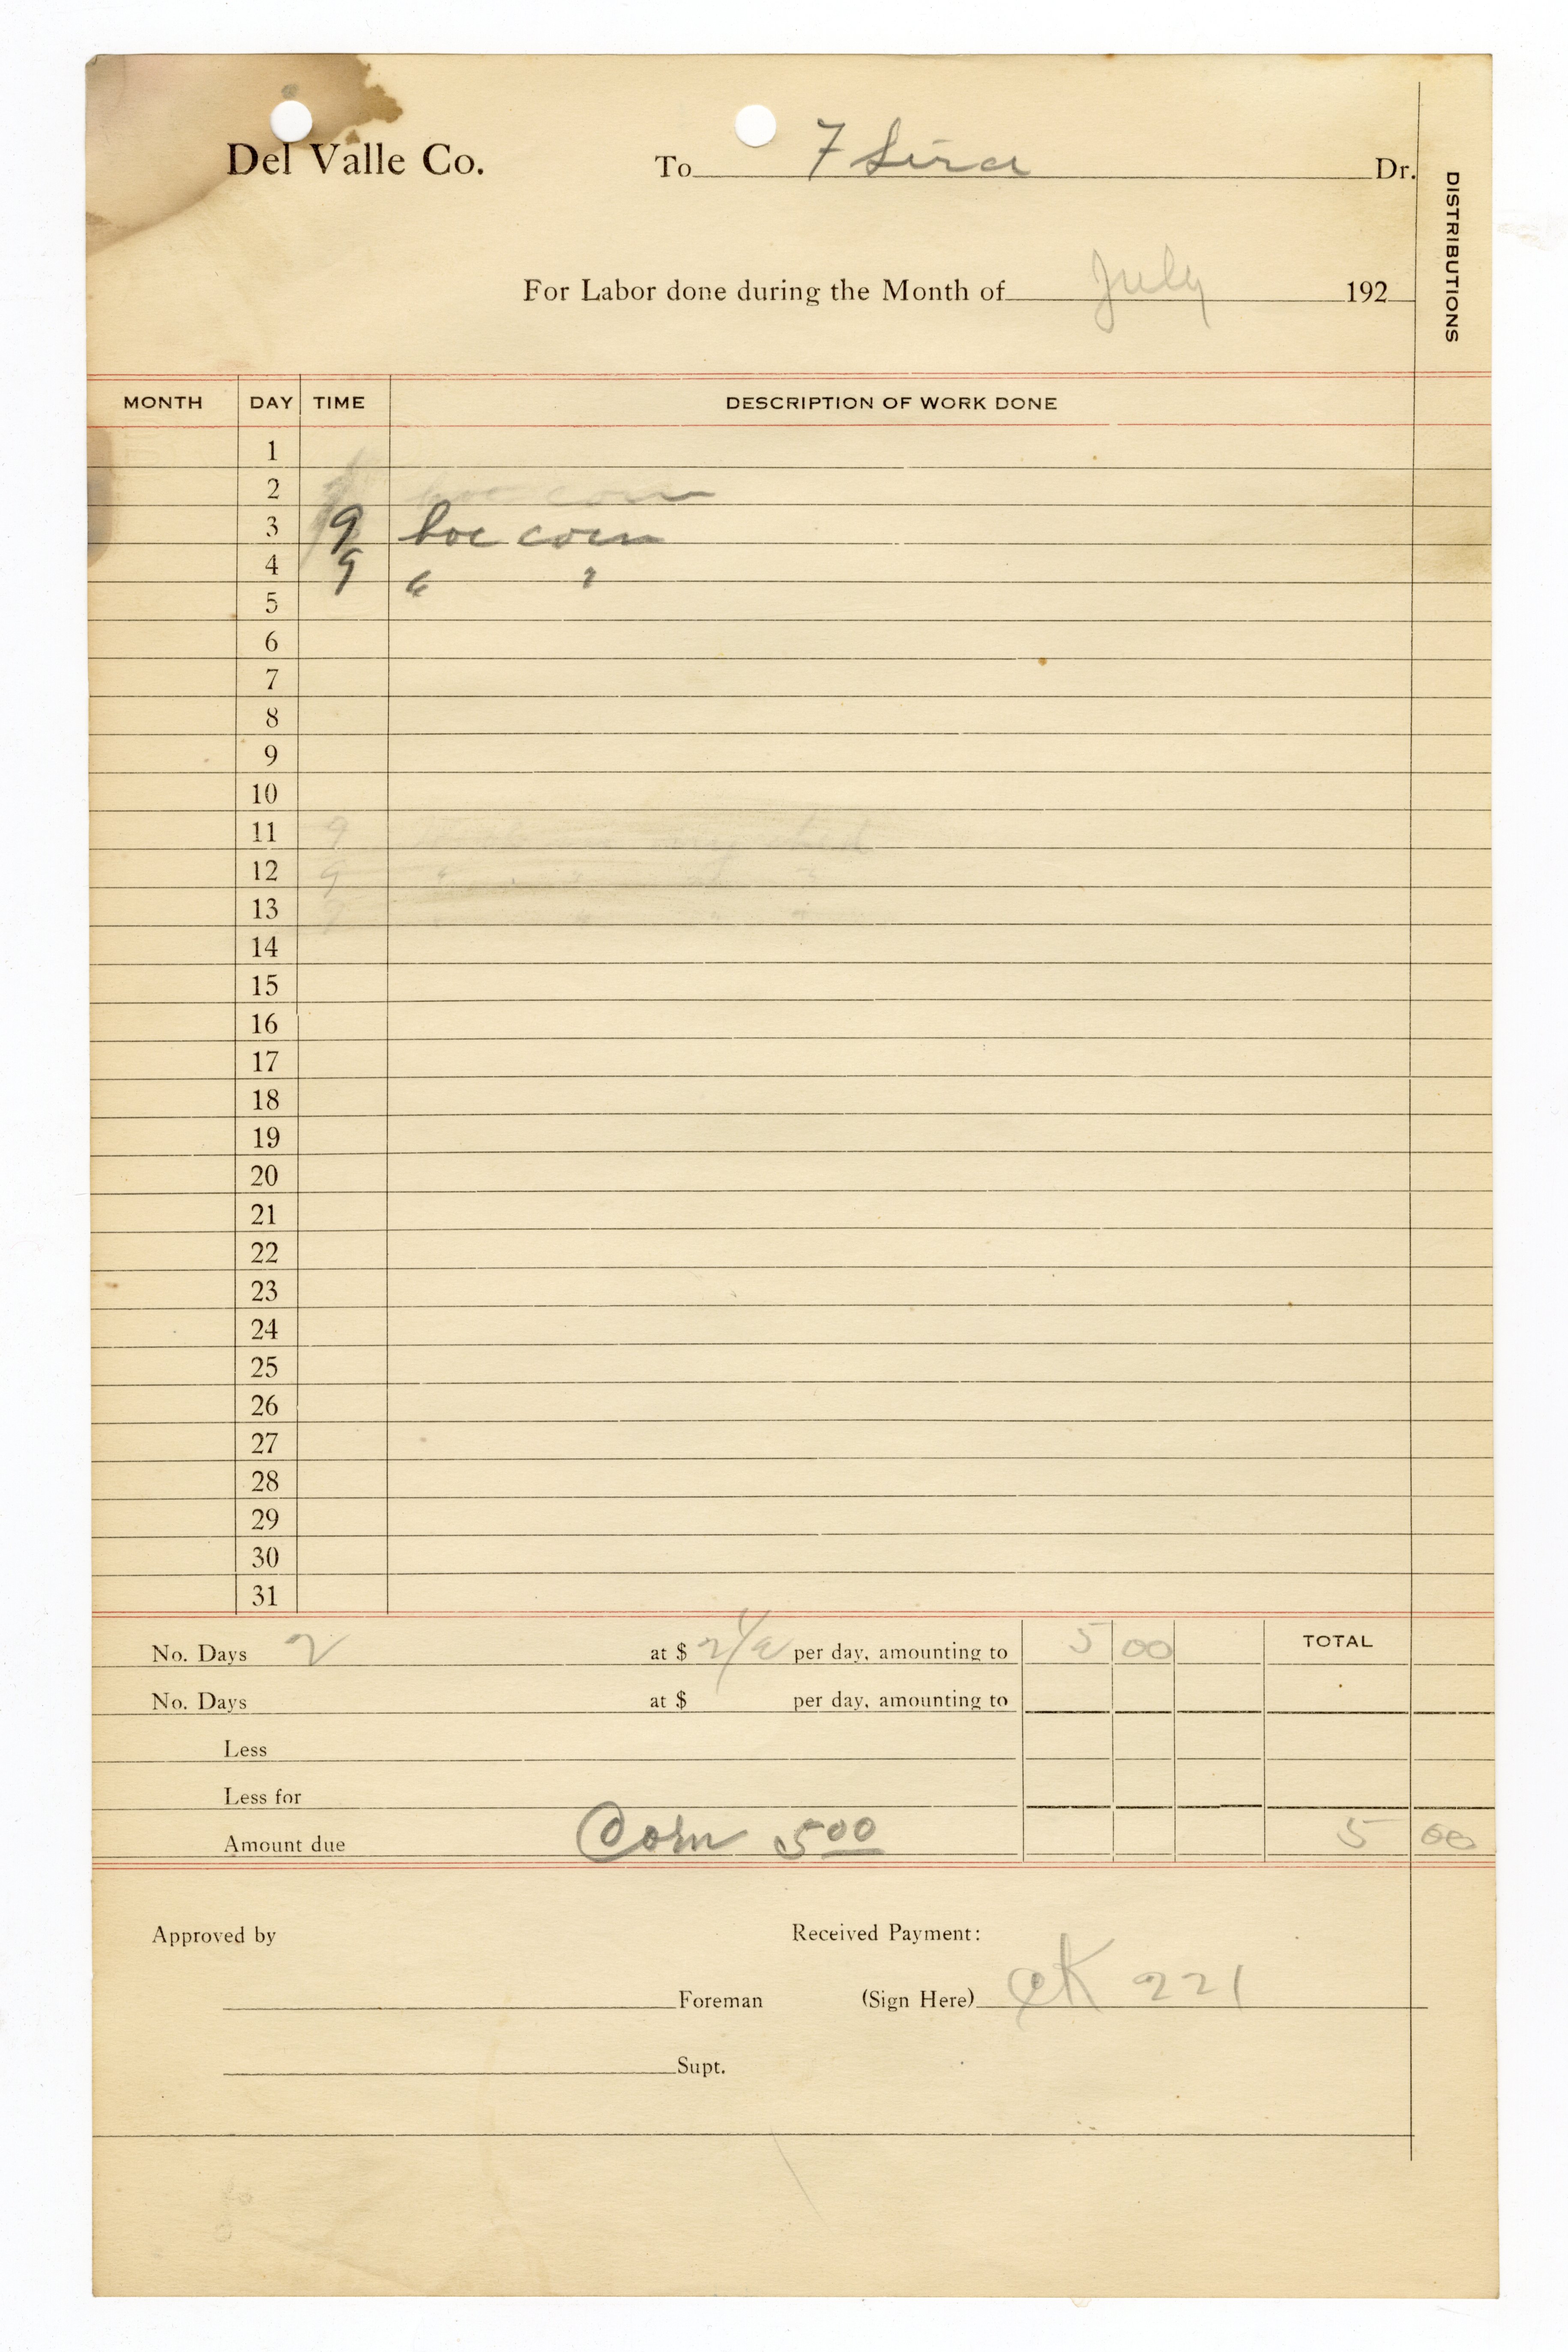 Del Valle Co. To 7 Sira Dr.
DISTRIBUTIONS
For Labor done during the Month of July 192
MONTH DAY TIME DESCRIPTION OF WORK DONE
1
2 hoe corn
3 9 hoe corn
4 9 " "
5
6
7
8
9
10
11 9
12 9
13 9
14
15
16
17
18
19
20
21
22
23
24
25
26
27
28
29
30
31
No. Days 2 at $ 2 1/2 per day, amounting to 5 00 TOTAL
No. Days at $ per day, amounting to
Less
Less for
Amount due Corn 5 00 5 00
Approved by Received Payment:
Foreman (Sign Here) CK 221
Supt.